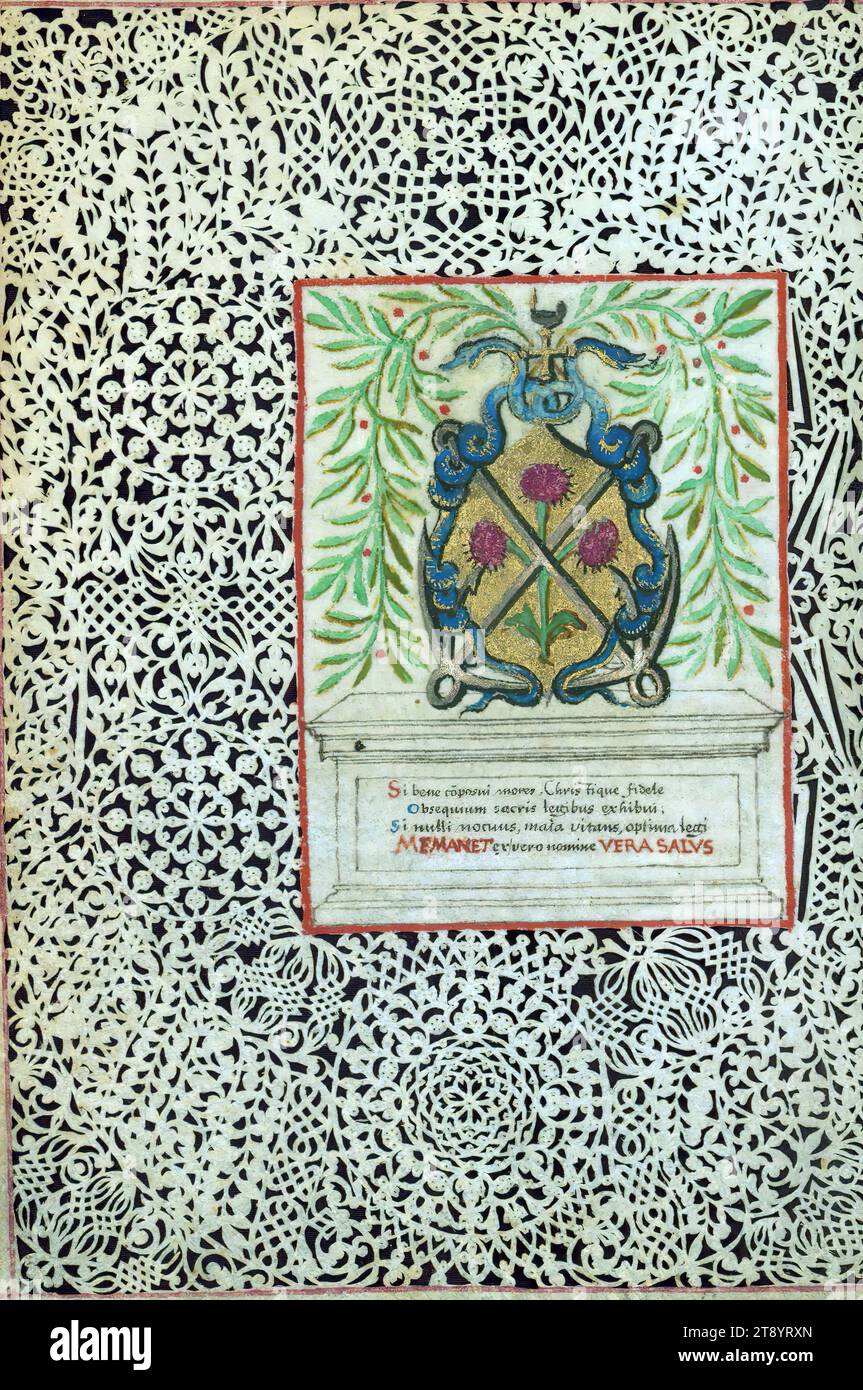 Si bene cōposui mores, Christique fidele
Obsequium sacris legibus exhibui;
Si nulli nocuus, mala vitans, optima legi
ME MANET ex vero nomine VERA SALVS
alamy
Image ID: 2T8YRXN
www.alamy.com